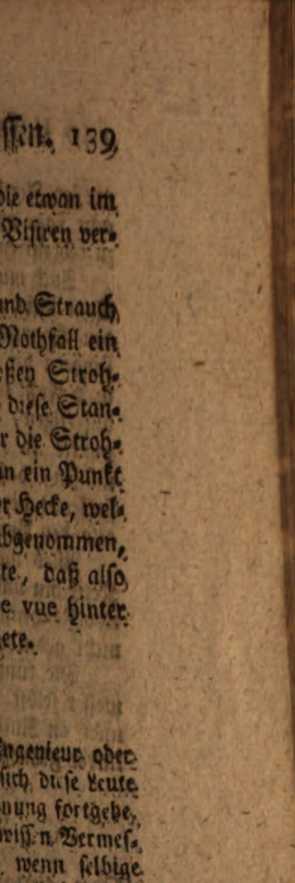 ssen. 139
die etwan im
Visiren ver-
und Strauch
Nothfall ein
oßen Stroh-
diese Stan-
r die Stroh-
an ein Punkt
r Hecke, wel-
abgenommen,
te, daß also
e vue hinter
ete.
Ingenieur oder
sich diese Leute
nung fortgehe,
wissen Vermes-
wenn selbige